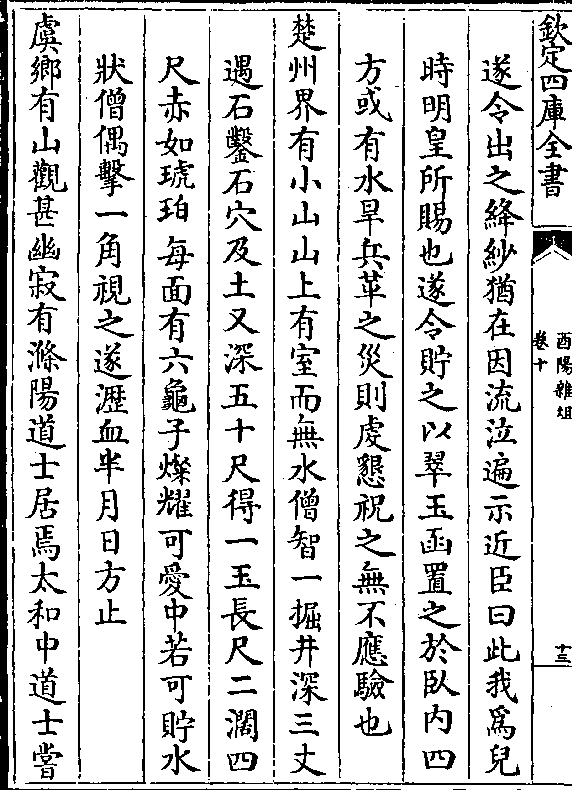 欽定四庫全書
酉陽雜俎
卷十
十三
遂令出之絳紗猶在因流泣遍示近臣曰此我為兒
時明皇所賜也遂令貯之以翠玉函置之於臥內四
方或有水旱兵革之災則虔懇祝之無不應驗也
楚州界有小山山上有室而無水僧智一掘井深三丈
遇石鑿石穴及土又深五十尺得一玉長尺二濶四
尺赤如琥珀每面有六龜子燦耀可愛中若可貯水
狀僧偶擊一角視之遂瀝血半月日方止
虞鄉有山觀甚幽寂有滌陽道士居焉太和中道士嘗